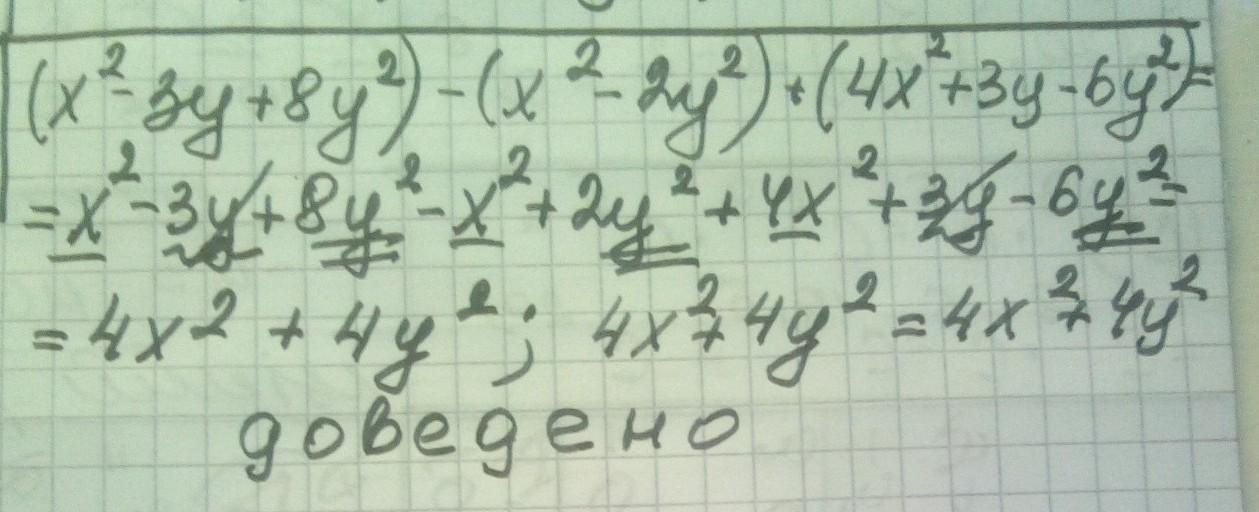 (x² - 3y + 8y²) - (x² - 2y²) + (4x² + 3y - 6y²) =
= x² - 3y + 8y² - x² + 2y² + 4x² + 3y - 6y² =
= 4x² + 4y² ; 4x² + 4y² = 4x² + 4y²
доведено